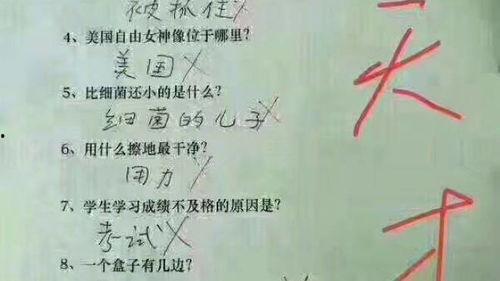 被抓住 X
4、美国自由女神像位于哪里？
美国 X
5、比细菌还小的是什么？
细菌的儿子 X
6、用什么擦地最干净？
用力 X
7、学生学习成绩不及格的原因是？
考试 X
8、一个盒子有几边？
天
才